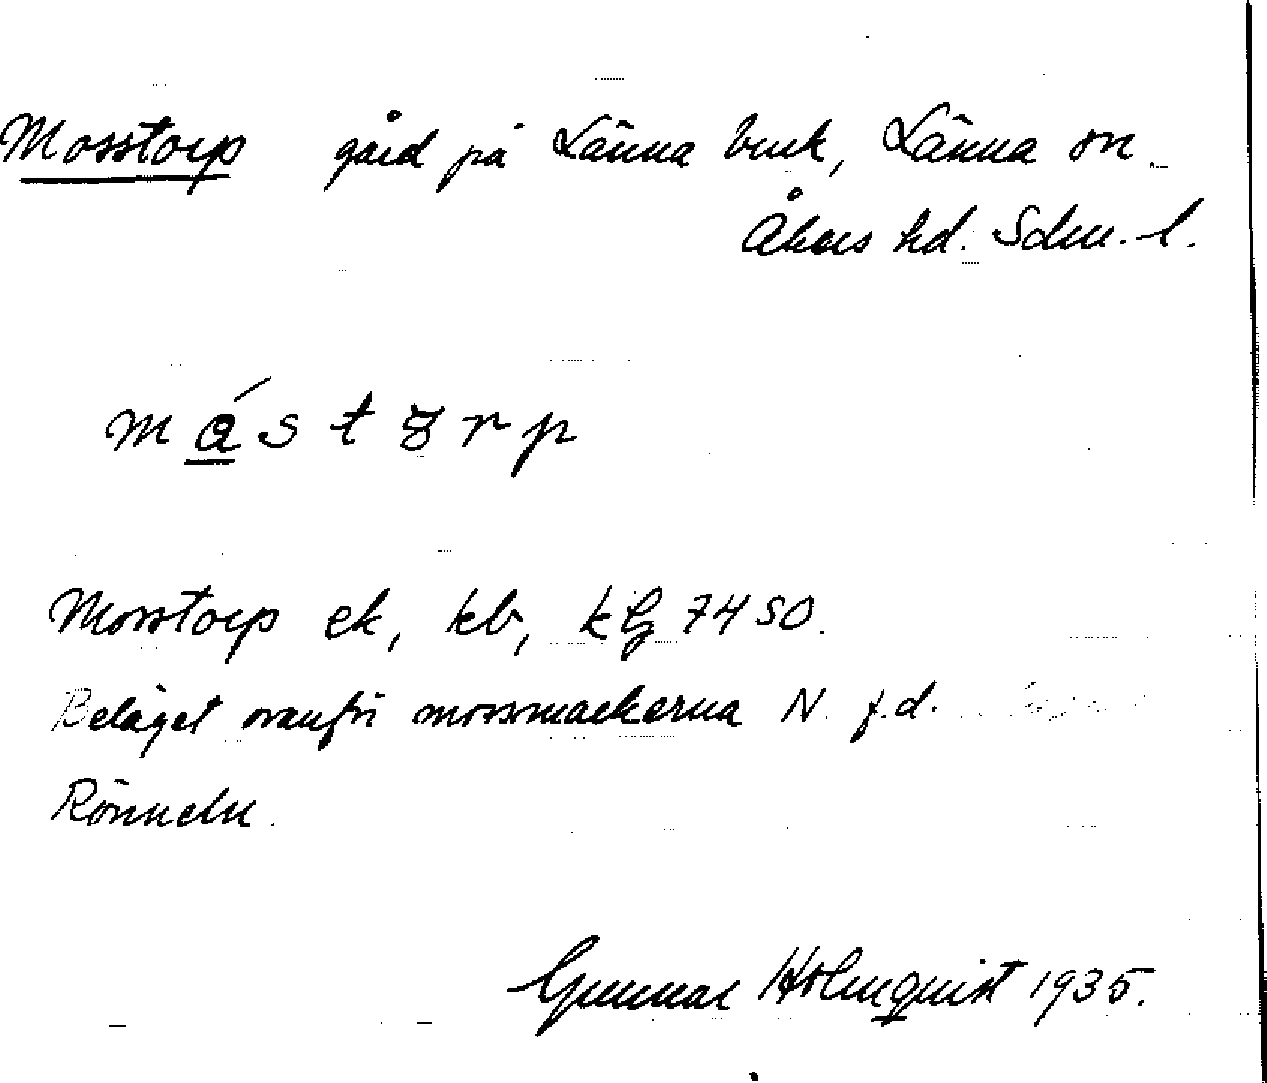 Mosstorp gård på Länna bruk, Länna sn.
Åkers hd. Sdm. l.
måstȣrp
Mosstorp ek, kb, kG 7450.
Beläget ovanför mossmackerna N f.d.
Rönneln.
Gunnar Holmquist 1935.